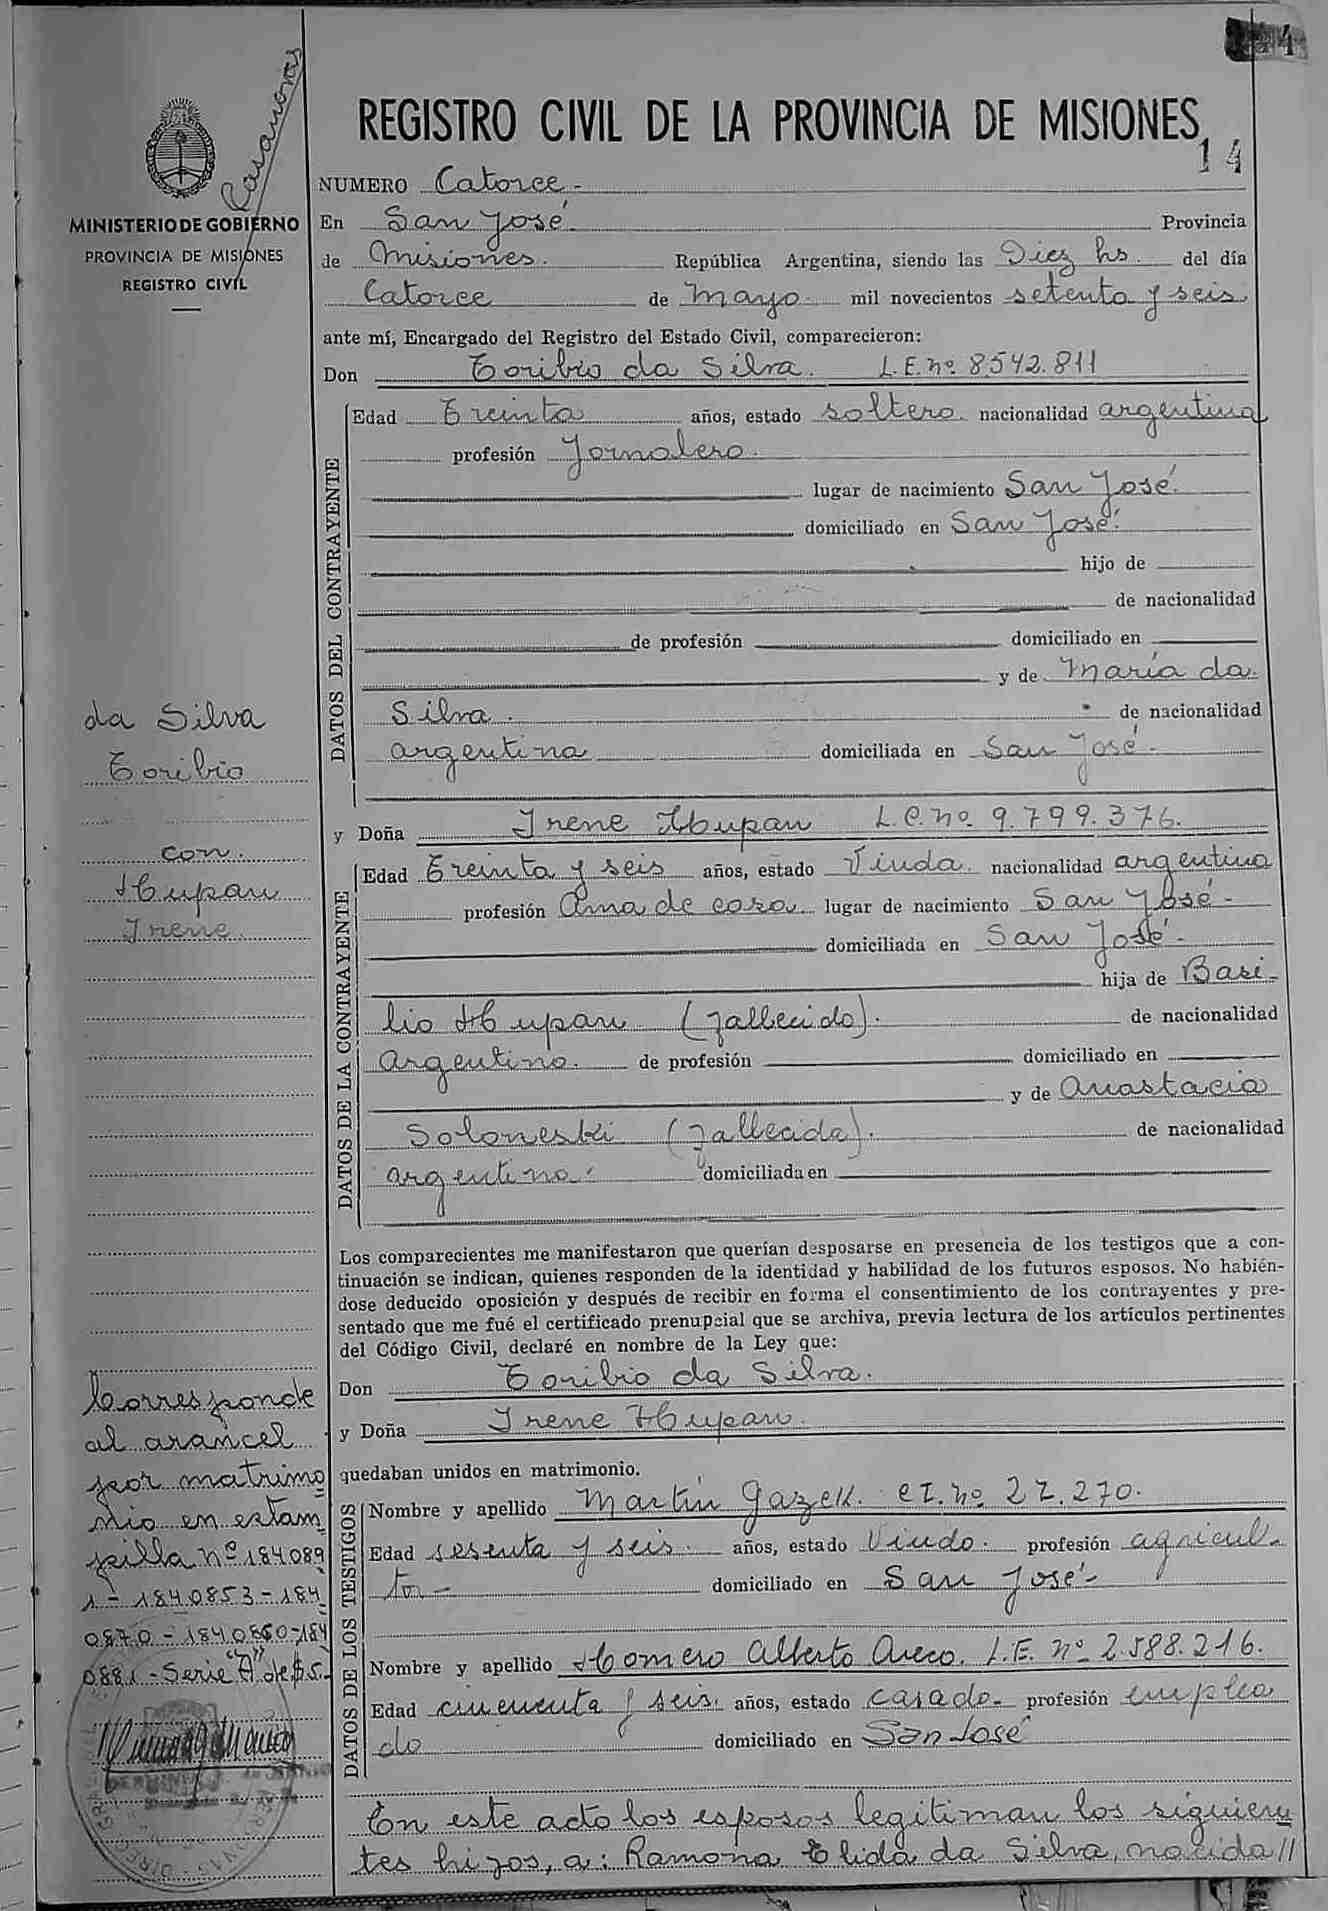 14
Casanovas
REGISTRO CIVIL DE LA PROVINCIA DE MISIONES
14
MINISTERIO DE GOBIERNO
PROVINCIA DE MISIONES
REGISTRO CIVIL
NUMERO Catorce.-
En San José. Provincia
de Misiones. República Argentina, siendo las Diez hs. del día
Catorce de Mayo. mil novecientos setenta y seis
ante mí, Encargado del Registro del Estado Civil, comparecieron:
Don Toribio da Silva. L.E. nº 8.542.811
DATOS DEL CONTRAYENTE
Edad Treinta años, estado soltero. nacionalidad argentina
profesión Jornalero.
lugar de nacimiento San José.
domiciliado en San José.
hijo de
de nacionalidad
de profesión domiciliado en
y de María da
Silva. de nacionalidad
argentina domiciliada en San José.-
da Silva
Toribio
con.
Hupan
Irene.
y Doña Irene Hupan L.C. nº 9.799.376.
DATOS DE LA CONTRAYENTE
Edad Treinta y seis años, estado Viuda. nacionalidad argentina
profesión Ama de casa. lugar de nacimiento San José.-
domiciliada en San José.-
hija de Basi-
lio Hupan (fallecido). de nacionalidad
Argentino. de profesión domiciliado en
y de Anastacia
Soloneski (fallecida). de nacionalidad
argentina. domiciliada en
Los comparecientes me manifestaron que querían desposarse en presencia de los testigos que a con-
tinuación se indican, quienes responden de la identidad y habilidad de los futuros esposos. No habién-
dose deducido oposición y después de recibir en forma el consentimiento de los contrayentes y pre-
sentado que me fué el certificado prenupcial que se archiva, previa lectura de los artículos pertinentes
del Código Civil, declaré en nombre de la Ley que:
Don Toribio da Silva.
y Doña Irene Hupan.
quedaban unidos en matrimonio.
DATOS DE LOS TESTIGOS
Nombre y apellido Martín Gazek. C.I. nº 27.270.
Edad sesenta y seis. años, estado Viudo. profesión agricul-
tor- domiciliado en San José.-
Nombre y apellido Homero Alberto Areco. L.E. nº 2.588.216.
Edad cincuenta y seis. años, estado casado. profesión emplea
do domiciliado en San José
En este acto los esposos legitiman los siguien
tes hijos, a: Ramona Elida da Silva, nacida //
Corresponde
al arancel
por matrimo
nio en estam
pilla nº 184089
1 - 1840853 - 184
0870 - 1840860 - 184
0881 - Serie "A" de $5.-